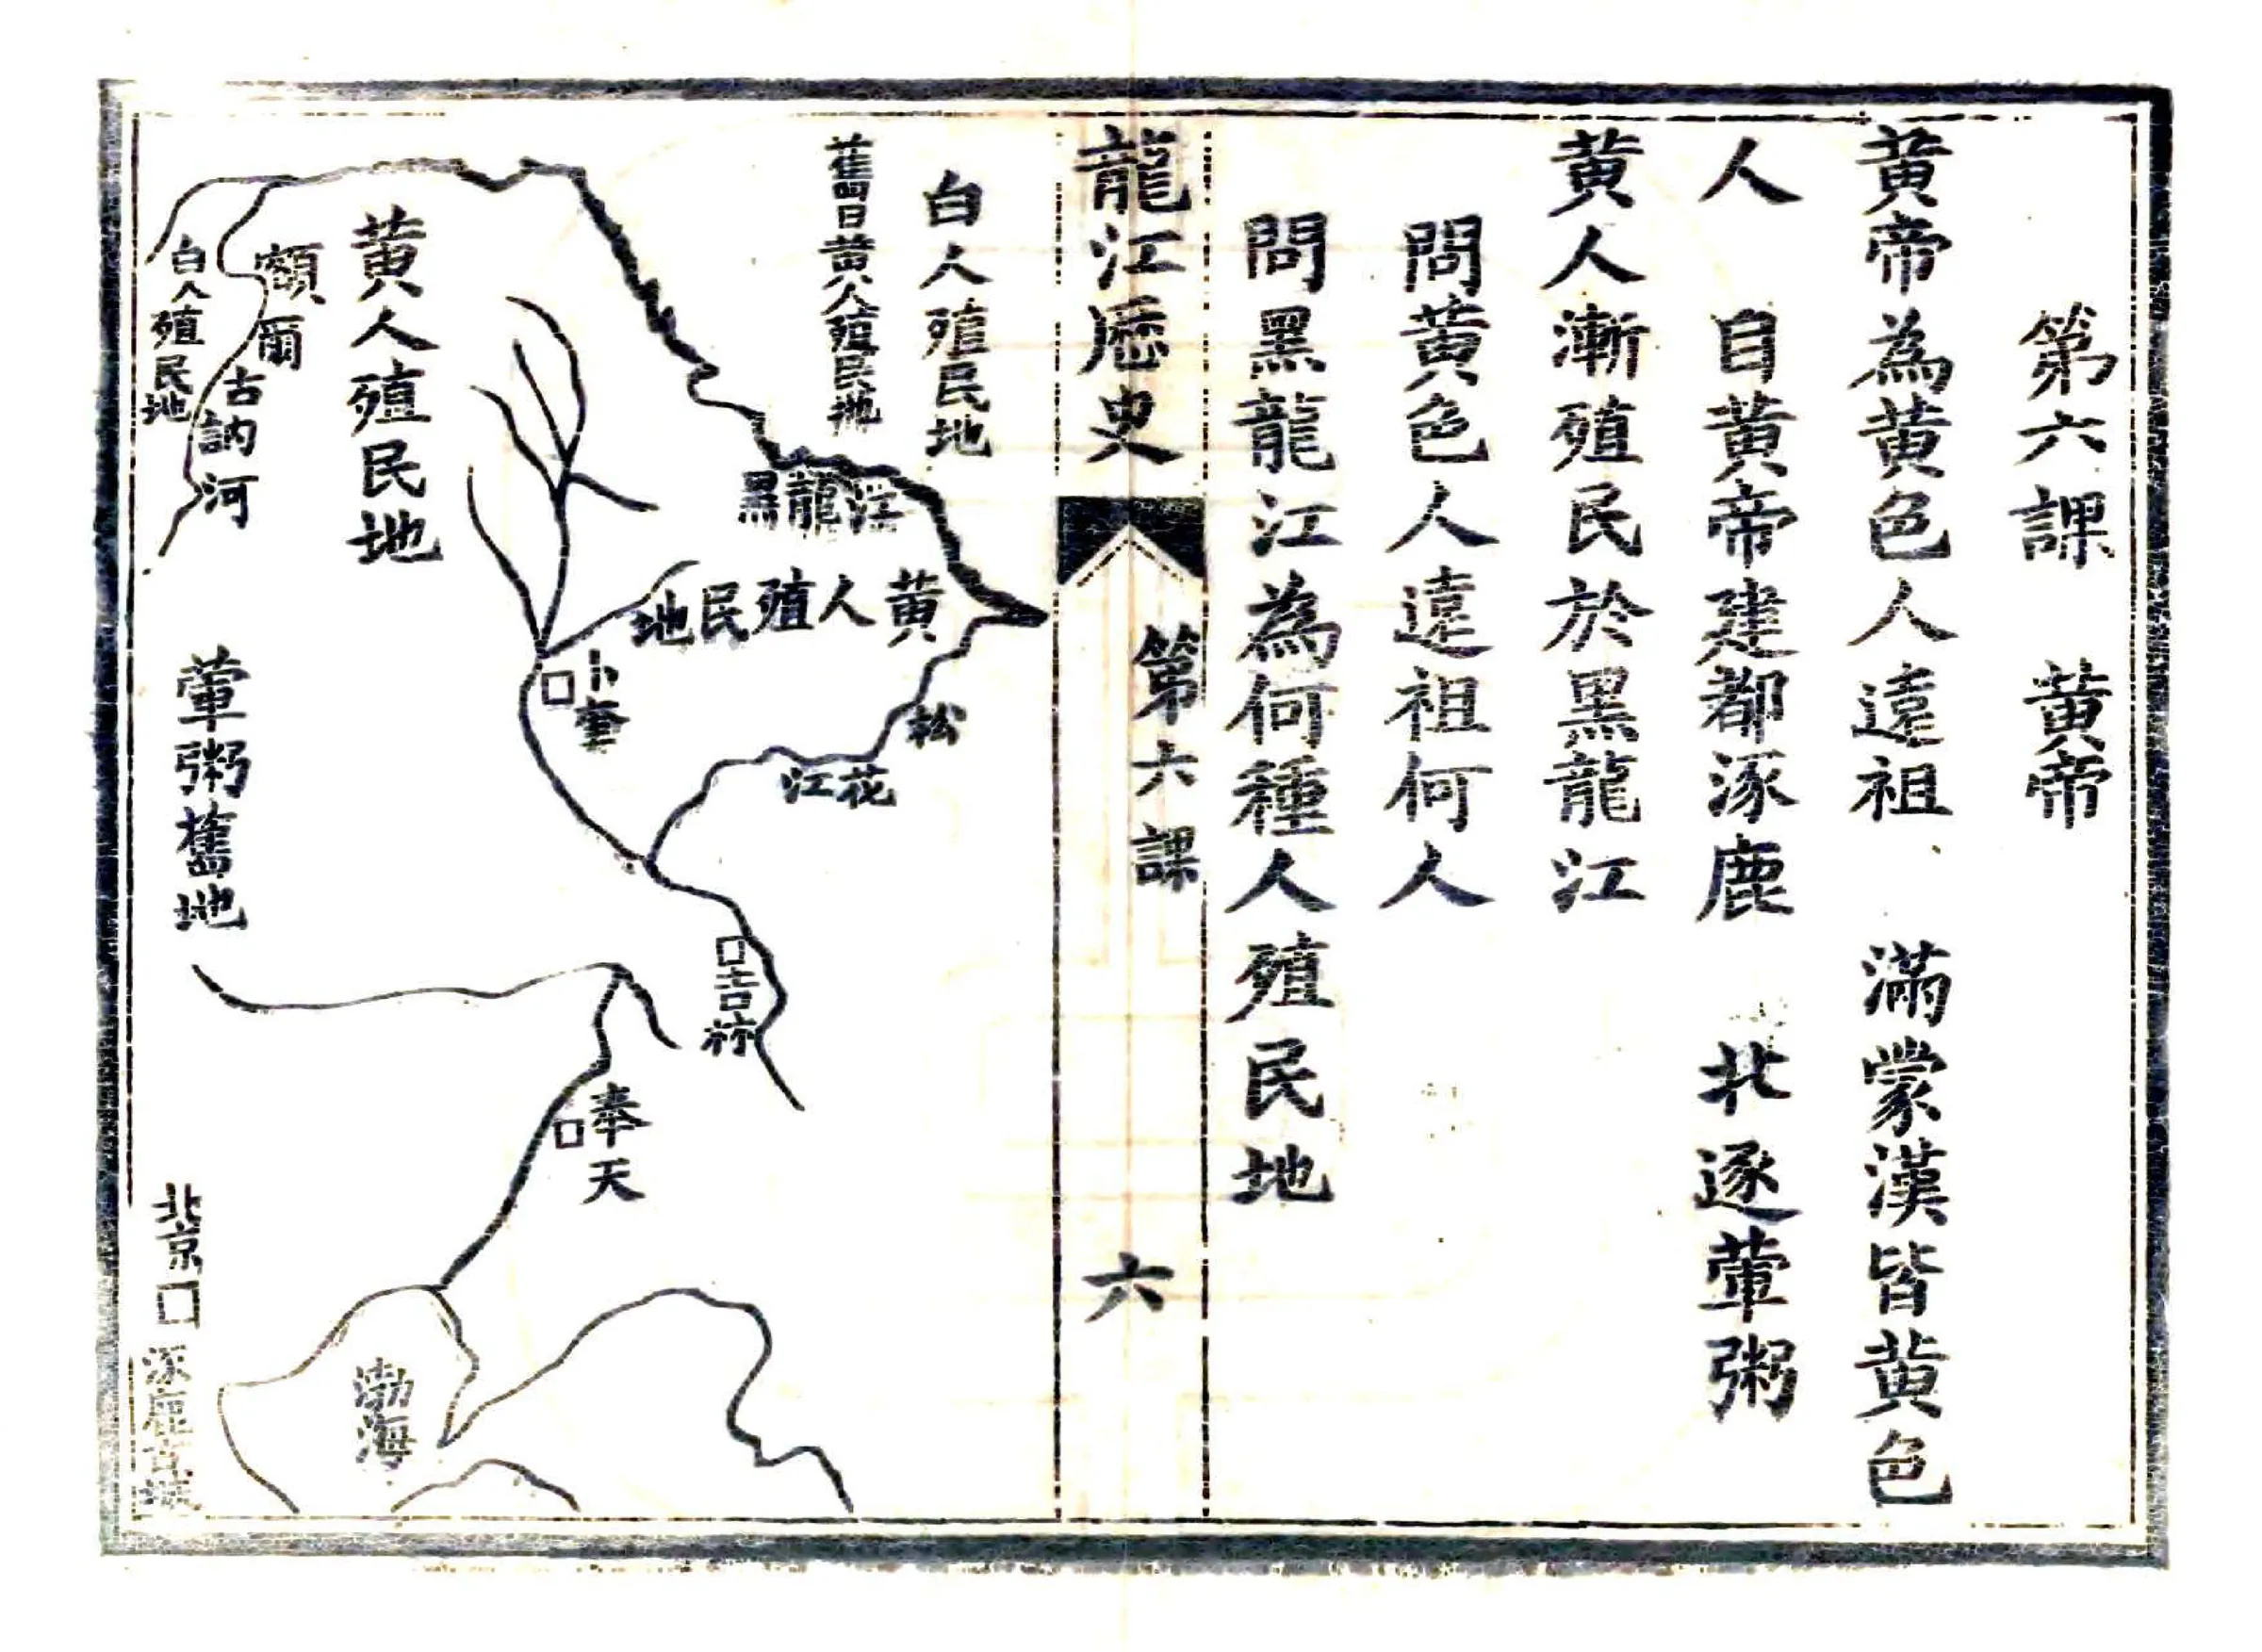 第六課　黃帝
黃帝為黃色人遠祖　滿蒙漢皆黃色
人　自黃帝建都涿鹿　北逐葷粥
黃人漸殖民於黑龍江
問黃色人遠祖何人
問黑龍江為何種人殖民地
龍江歷史
第六課
六
白人殖民地
舊日黃人殖民地
黑龍江
黃人殖民地
松花江
卜奎
吉林
奉天
黃人殖民地
額爾古訥河
白人殖民地
葷粥舊地
渤海
北京
涿鹿